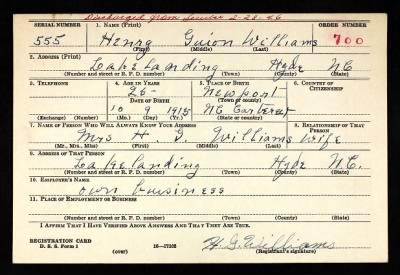 Discharged from Service 2-28-46
SERIAL NUMBER 1. NAME (Print) ORDER NUMBER
555 Henry Guion Williams 700
(First) (Middle) (Last)
2. ADDRESS (Print)
Lake Landing Hyde NC
(Number and street or R. F. D. number) (Town) (County) (State)
3. TELEPHONE 4. AGE IN YEARS 5. PLACE OF BIRTH 6. COUNTRY OF CITIZENSHIP
25 Newport
DATE OF BIRTH (Town or county)
10 9 1915 NC Carteret
(Exchange) (Number) (Mo.) (Day) (Yr.) (State or country)
7. NAME OF PERSON WHO WILL ALWAYS KNOW YOUR ADDRESS 8. RELATIONSHIP OF THAT PERSON
Mrs H. G. Williams Wife
(Mr., Mrs., Miss) (First) (Middle) (Last)
9. ADDRESS OF THAT PERSON
Lake Landing Hyde N.C.
(Number and street or R. F. D. number) (Town) (County) (State)
10. EMPLOYER'S NAME
own business
11. PLACE OF EMPLOYMENT OR BUSINESS
(Number and street or R. F. D. number) (Town) (County) (State)
I AFFIRM THAT I HAVE VERIFIED ABOVE ANSWERS AND THAT THEY ARE TRUE.
REGISTRATION CARD
D. S. S. Form 1 16—17105 H. G. Williams
(over) (Registrant's signature)